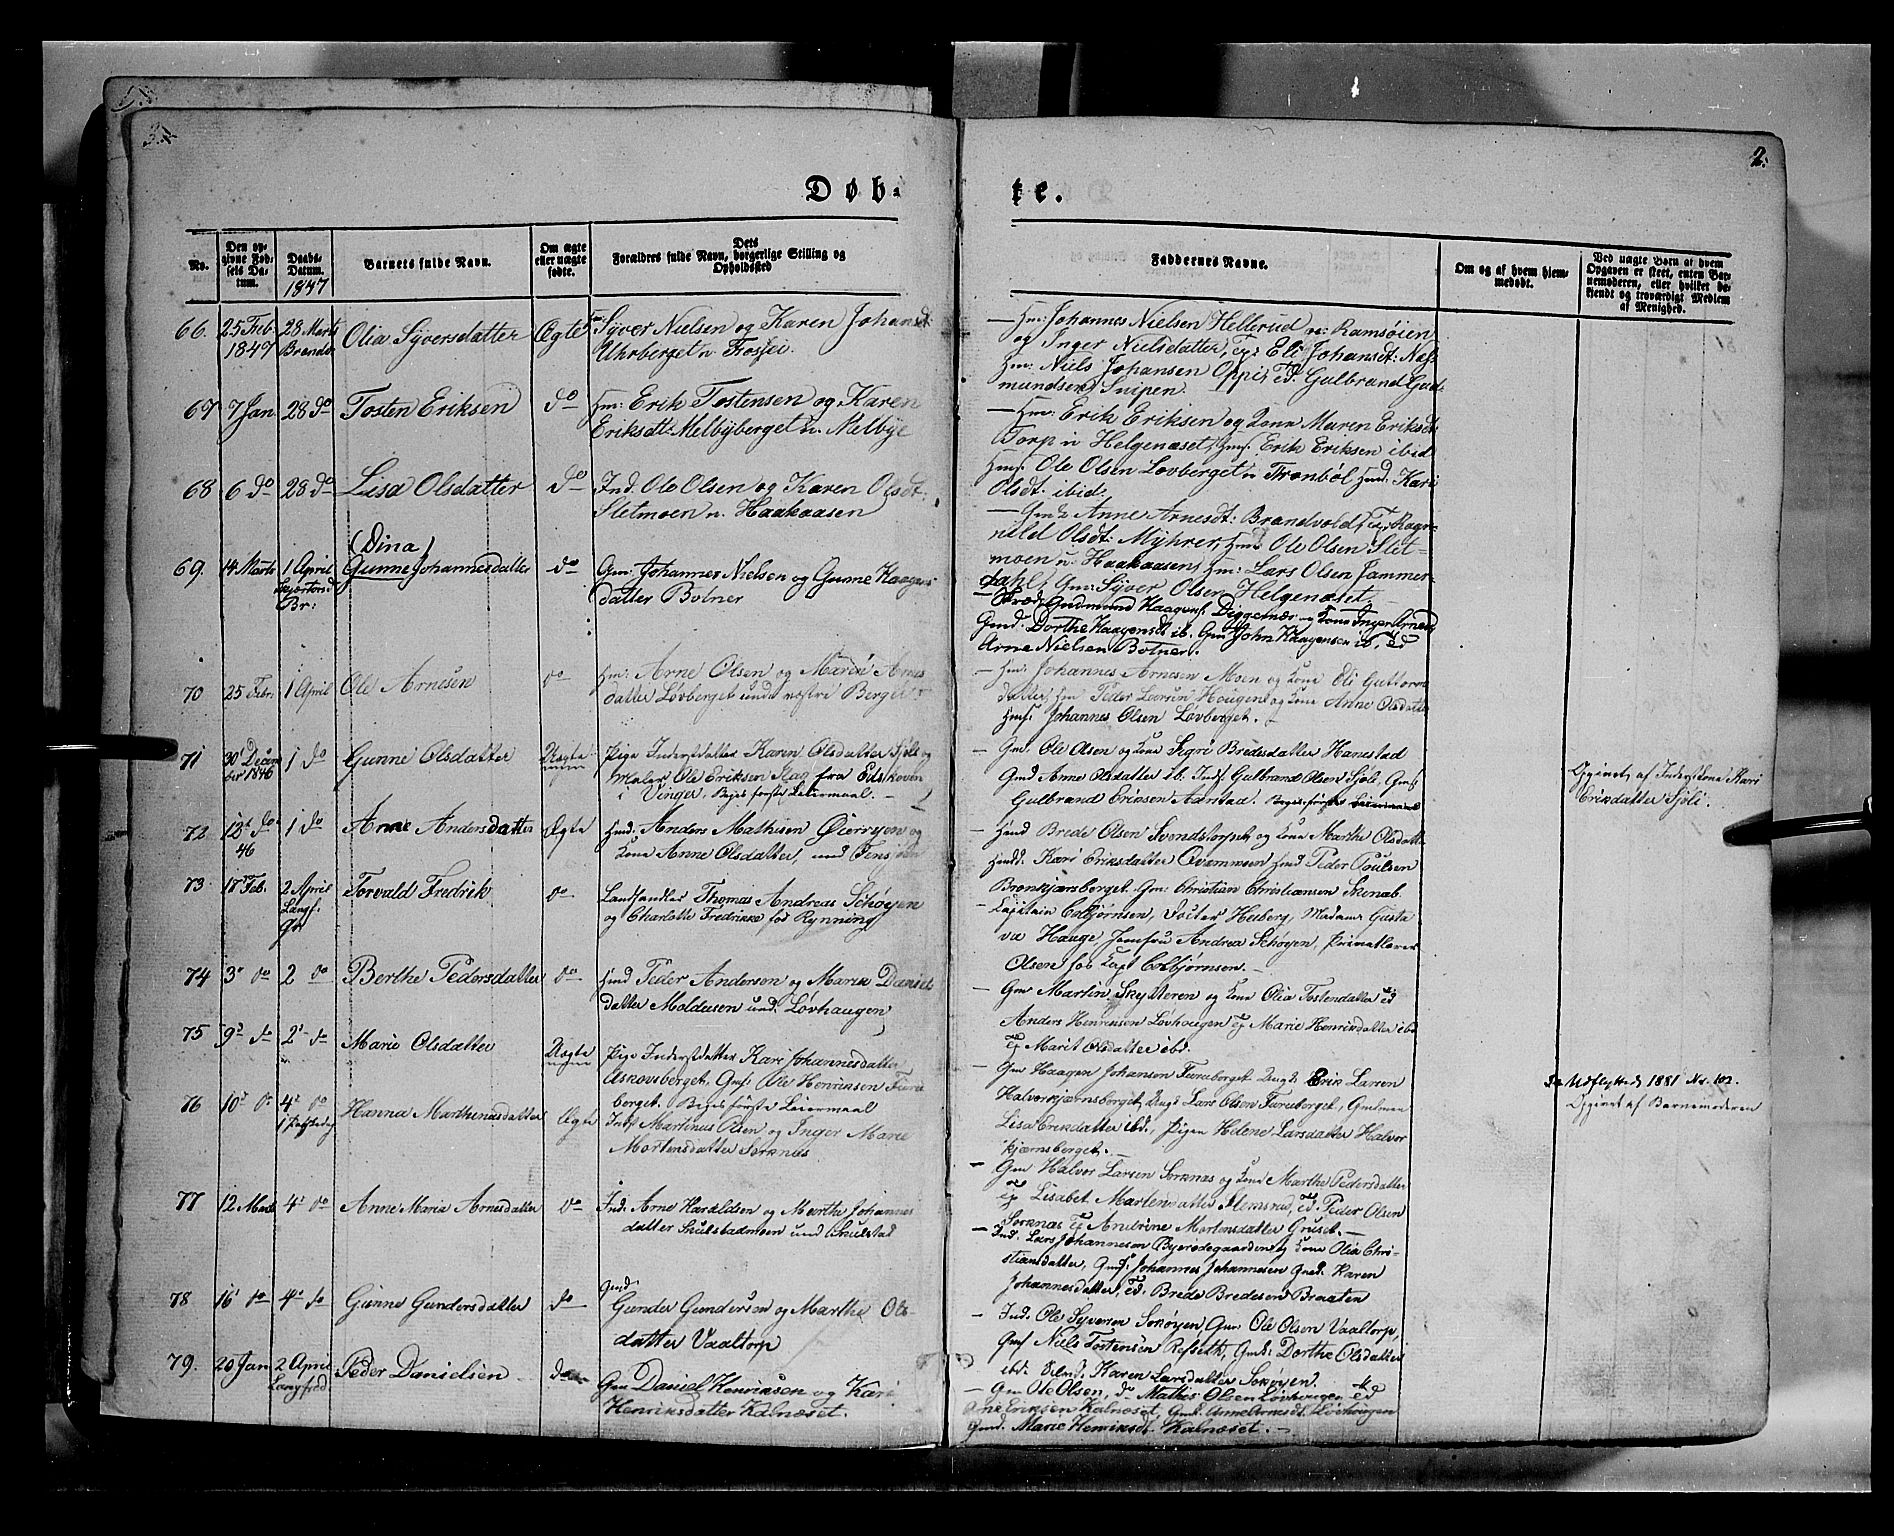 2.
Døb-
te.
No.
Den op-
givne Fød-
sels Da-
tum.
Daabs-
Datum.
1847
Barnets fulde Navn.
Om ægte
eller uægte
fødte.
Dets
Forældres fulde Navn, borgerlige Stilling og
Opholdsted
Faddernes Navne.
Om og af hvem hjem-
medøbt.
Ved uægte Børn af hvem
Opgaven er skeet, enten Bar-
nemoderen, eller hvilket be-
kjendt og troværdigt Medlem
af Menighed.
66. 25 Feb 1847
28 Marts
Brandv.
Olia Syversdatter
Ægte
Syver Nielsen og Karen Johansd:
Uhrberget u. Fossei.
— Hm: Johannes Nielsen Hellerud u: Ramsøien
og Inger Nielsdatter, Eli Johansdt: Næs
Hm: Niels Johansen Oppi, Ed. Gulbrand Gud-
mundsen Snipen.
67 7 Jan 28 do Tosten Eriksen do
Hm: Erik Tostensen og Karen
Eriksdt: Melbyberget u. Melbye
— Hm: Erik Eriksen og Kone Maren Eriksdt:
Torp u Helgenæset, Hmf. Erik Eriksen ibid
Hmf. Ole Olsen Lovberget u Trønbøl Hmd. Kari
Olsdt. ibid.
68 6 do 28 do Lisa Olsdatter do
Ind. Ole Olsen og Karen Olsdt:
Sletmoen u. Haakaasen
— Gmk Anne Arnesdt: Brandvold, Ragn-
hild Olsdt: Myhrer, Hmf. Ole Olsen Slet-
moen u. Haakaasen, Hm: Lars Olsen Jammer-
dahl, Gm: Syver Olsen Helgenæset.
69. 14 Marts 1 April
Skjærtorsd.
Br:
(Dina)
Gunne Johannesdatter
do
Gm: Johannes Nielsen og Gunne Haagens
datter Botner
Gudmund Haagens. Diggernæs og Kone Inger Arnesd
Gmd. Dorthe Haagensdt ib. Gm John Haagensen ib. Ed
Arne Nielsen Botner.
70 25 Febr. 1 April Ole Arnesen do
Hm: Arne Olsen og Maria Arnes
datter Løvberget under vestre Berger
— Hm: Johannes Arnesen Moen og Kone Eli Guttorms
datter, Hm Peder Larsen Hougen og Kone Anne Olsdatter
Hmf. Johannes Olsen Løvberget. —
71 30' Decem
ber 1846
1 do Gunne Olsdatter
Uægte
Pige Inderstdatter Karen Olsdatter Sjøli og
Maler Ole Eriksen Stag fra Eidskoven
i Vinger. Begges første Leiermaal. —
— Gmd. Ole Olsen og Kone Sigri Bredesdatter Hanestad
Gmd Anne Olsdatter ib. Indf. Gulbrand Olsen Sjøli, Gmf
Gulbrand Eriksen Aanstad. Begges første Leiermaal
Opgivet af Inderstkone Kari
Eriksdatter Sjøli.
72 12t do
46
1 do Anne Andersdatter Ægte
Hmd: Anders Mathisen Øierryen og
Kone Anne Olsdatter, und
— Hmd Brede Olsen Svenstorpet og Kone Marthe Olsdatter
Hmdd. Kari Eriksdatter Qvammoen Hmd Peder Poulsen
Bronkjærsberget. Gm: Christian Christiansen Skinab
73. 17 Feb. 2 April
Langf.
Gr.
Torvald Fredrik do
Landhandler Thomas Andreas Schøyen
og Charlotte Fredrikke fød Rynning
— Capitain Colbjørnsen, Docter Heiberg, Madame Gusta
va Hauge, Jomfru Andrea Schøyen, Privatlærer
Olsen hos Capt Colbjørnsen. —
74 3' do 2 do Berthe Pedersdatter do
Hmd Peder Anderson og Maria Daniels
datter Moldusen und. Løvhaugen
— Gm Martin Skysteren og Kone Olia Tostendatter Ed
Anders Henriksen Løvhaugen Ep Marie Henriksdatter ibd
Ep Marit Olsdatter ibd.
75 9' do 2' do Marie Olsdatter
Uægte
Pige Inderstdatter Kari Johannesdatter
Askovsberget, Gmf. Ole Henriksen Fure
berget. Begges første Leiermaal
— Gm Haagen Johansen Fureberget Ungk. Erik Larsen
Halvorkjærnsberget, Ungk Lars Olsen Fureberget, Gmkone
Lisa Eriksdatter ibd., Pigen Helene Larsdatter Halvor
kjærnsberget. —
Udflyttede 1881 Nr. 102.
Opgivet af Barnemoderen
76 10' do 4' do
Hanna Marthinusdatter Ægte
Indf Martinus Olsen og Inger Marie
Mortensdatter Sorknæs
— Gm Halvor Larsen Sorknæs og Kone Marthe Pedersdatter
Ep Lisabet Martensdatter Stensrud, Ed Peder Olsen
Sorknæs Ep Andrine Mortensdatter Gruset. —
77 12 Marts 4' do Anne Maria Arnesdatter do
Ind. Arne Haraldsen og Marthe Johannes
datter Skulstadmoen und Skulstad
— Ind. Lars Johannesen Byerødegaarden og Kone Olia Chri-
stiansdatter, Gmf. Johannes Johannesen Gmd. Karen
Johannesdatter, Ed. Brede Bredesen Braaten
78 16' do 4' do Gunne Gundersdatter do
Gmd.
Gunder Gundersen og Marthe Ols-
datter Vaaltorp
— Ind. Ole Syversen Sorøyen Gm. Ole Olsen Vaaltorp,
Gmf Niels Tostensen Refseth, Gmk: Dorthe Olsdatter
ibd. Karen Larsdatter Sorøyen
79. 20 Jan 2 April
Langfred
Peder Danielsen do
Gm Daniel Henriksen og Kari
Henriksdatter Kalnæset.
— Gm Ole Olsen, do Mathis Olsen Løvhougen Ed
Eriksen Kalnæset, Gmk. Anne Arnesdt. Løvhougen
Gmd. Marie Henriksdt. Kalnæset. —